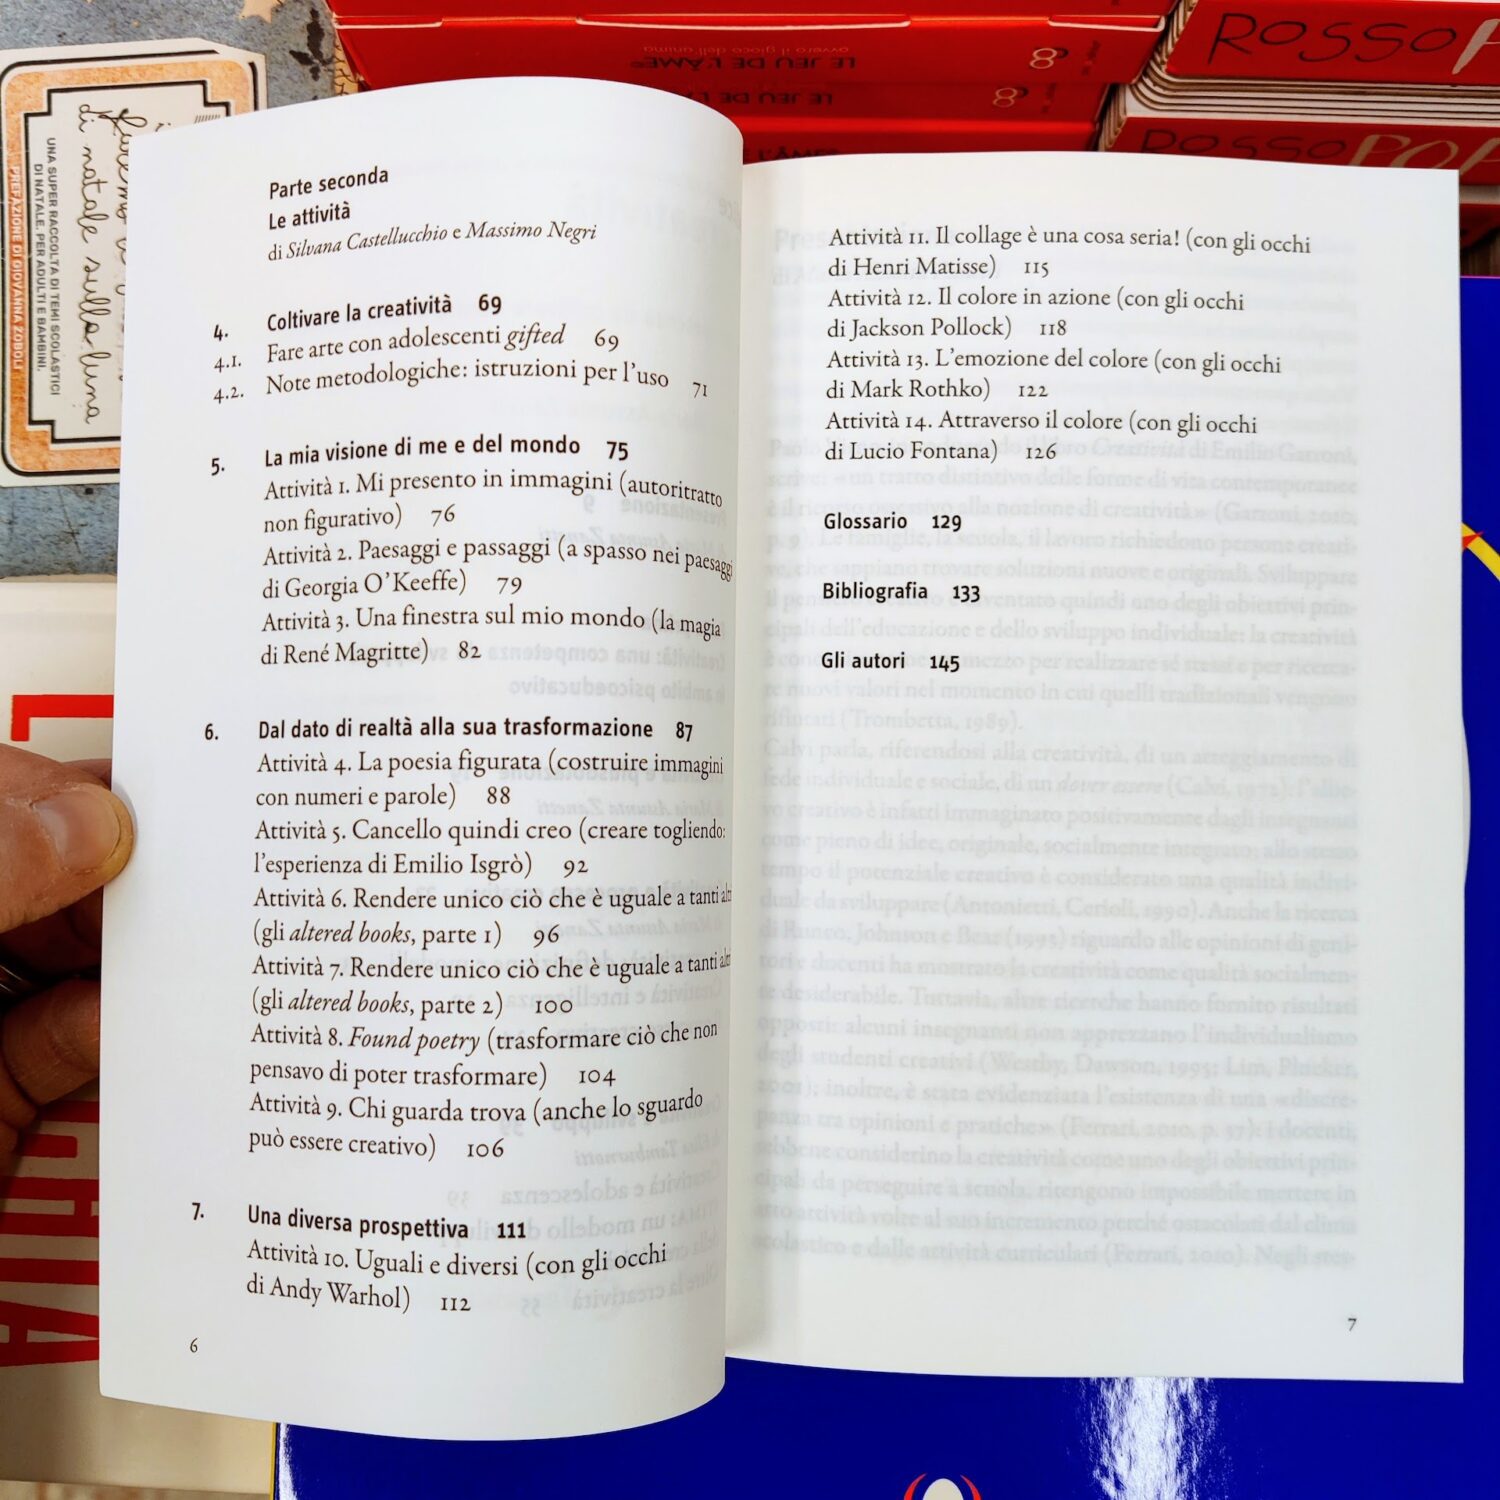 Parte seconda
Le attività
di Silvana Castellucchio e Massimo Negri
4. Coltivare la creatività 69
4.1. Fare arte con adolescenti gifted 69
4.2. Note metodologiche: istruzioni per l'uso 71
5. La mia visione di me e del mondo 75
Attività 1. Mi presento in immagini (autoritratto
non figurativo) 76
Attività 2. Paesaggi e passaggi (a spasso nei paesaggi
di Georgia O'Keeffe) 79
Attività 3. Una finestra sul mio mondo (la magia
di René Magritte) 82
6. Dal dato di realtà alla sua trasformazione 87
Attività 4. La poesia figurata (costruire immagini
con numeri e parole) 88
Attività 5. Cancello quindi creo (creare togliendo:
l'esperienza di Emilio Isgrò) 92
Attività 6. Rendere unico ciò che è uguale a tanti
(gli altered books, parte 1) 96
Attività 7. Rendere unico ciò che è uguale a tanti
(gli altered books, parte 2) 100
Attività 8. Found poetry (trasformare ciò che non
pensavo di poter trasformare) 104
Attività 9. Chi guarda trova (anche lo sguardo
può essere creativo) 106
7. Una diversa prospettiva 111
Attività 10. Uguali e diversi (con gli occhi
di Andy Warhol) 112
6
Attività 11. Il collage è una cosa seria! (con gli occhi
di Henri Matisse) 115
Attività 12. Il colore in azione (con gli occhi
di Jackson Pollock) 118
Attività 13. L'emozione del colore (con gli occhi
di Mark Rothko) 122
Attività 14. Attraverso il colore (con gli occhi
di Lucio Fontana) 126
Glossario 129
Bibliografia 133
Gli autori 145
7
di natale sulla luna
UNA SUPER RACCOLTA DI TEMI SCOLASTICI
DI NATALE. PER ADULTI E BAMBINI.
PREFAZIONE DI GIOVANNA ZOBOLI
LE JEU DE L'ÂME
ovvero il gioco dell'anima
LE JEU DE
L'ÂME
ROSSO
ROSSO POP